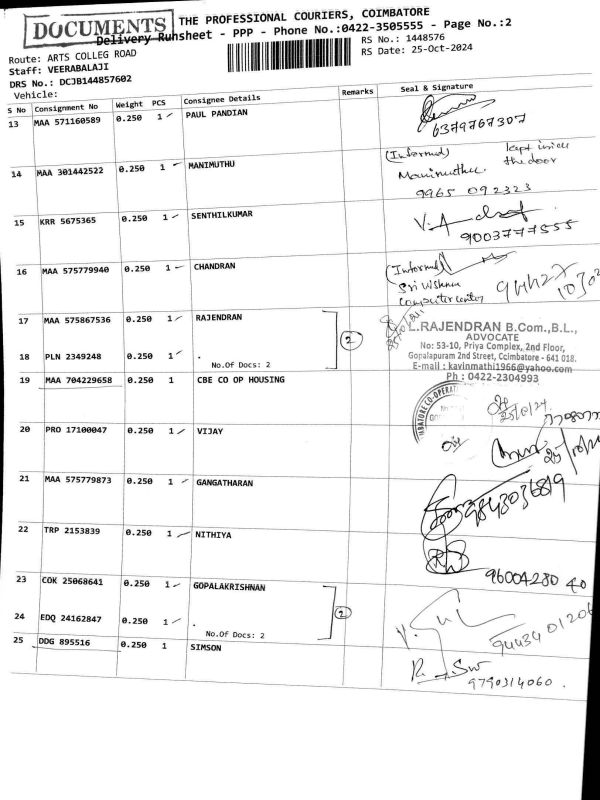 DOCUMENTS
THE PROFESSIONAL COURIERS, COIMBATORE
Delivery Runsheet - PPP - Phone No.:0422-3505555 - Page No.:2
Route: ARTS COLLEG ROAD
RS No.: 1448576
Staff: VEERABALAJI
RS Date: 25-Oct-2024
DRS No.: DCJB144857602
Vehicle:
S No Consignment No Weight PCS Consignee Details Remarks Seal & Signature
13 MAA 571160589 0.250 1 PAUL PANDIAN
6379767307
14 MAA 301442522 0.250 1 MANIMUTHU
(Informed) kept inside
Manimuthu. the door
9965 092323
15 KRR 5675365 0.250 1 SENTHILKUMAR
9003777555
16 MAA 575779940 0.250 1 CHANDRAN
(Informed)
Sri Vishnu
Computer center
17 MAA 575867536 0.250 1 RAJENDRAN
18 PLN 2349248 0.250 1 .
No.Of Docs: 2
2
L.RAJENDRAN B.Com.,B.L.,
ADVOCATE
No: 53-10, Priya Complex, 2nd Floor,
Gopalapuram 2nd Street, Coimbatore - 641 018.
E-mail : kavinmathi1966@yahoo.com
Ph : 0422-2304993
19 MAA 704229658 0.250 1 CBE CO OP HOUSING
20 PRO 17100047 0.250 1 VIJAY
21 MAA 575779873 0.250 1 GANGATHARAN
9843036819
22 TRP 2153839 0.250 1 NITHIYA
96004280 40
23 COK 25068641 0.250 1 GOPALAKRISHNAN
24 EDQ 24162847 0.250 1 .
No.Of Docs: 2
2
94434 01206
25 DDG 895516 0.250 1 SIMSON
9790314060.